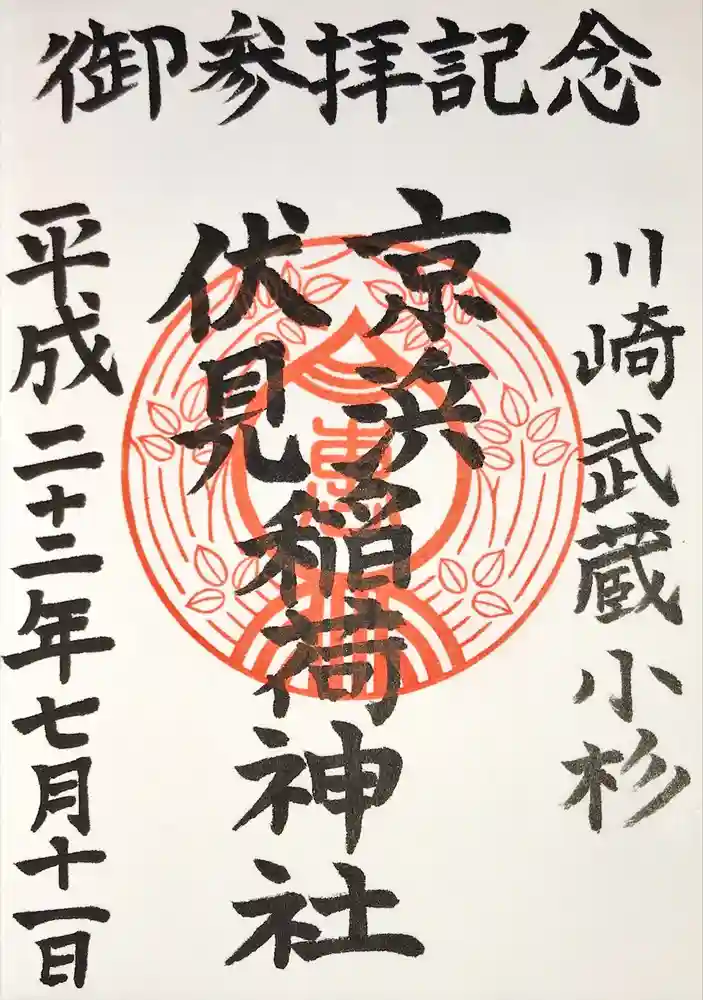 御参拝記念
川崎武蔵小杉
京浜
伏見
稲荷神社
平成二十二年七月十一日